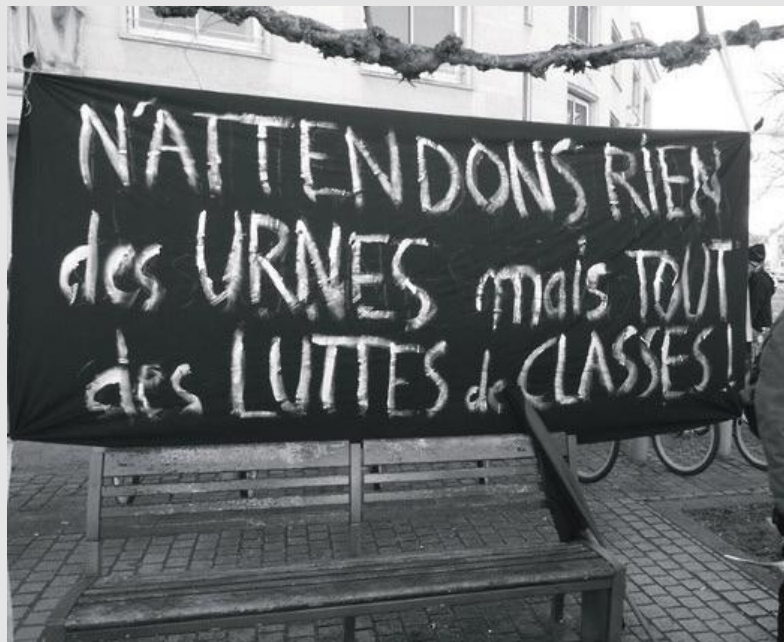 N'ATTENDONS RIEN
des URNES mais TOUT
des LUTTES de CLASSES !